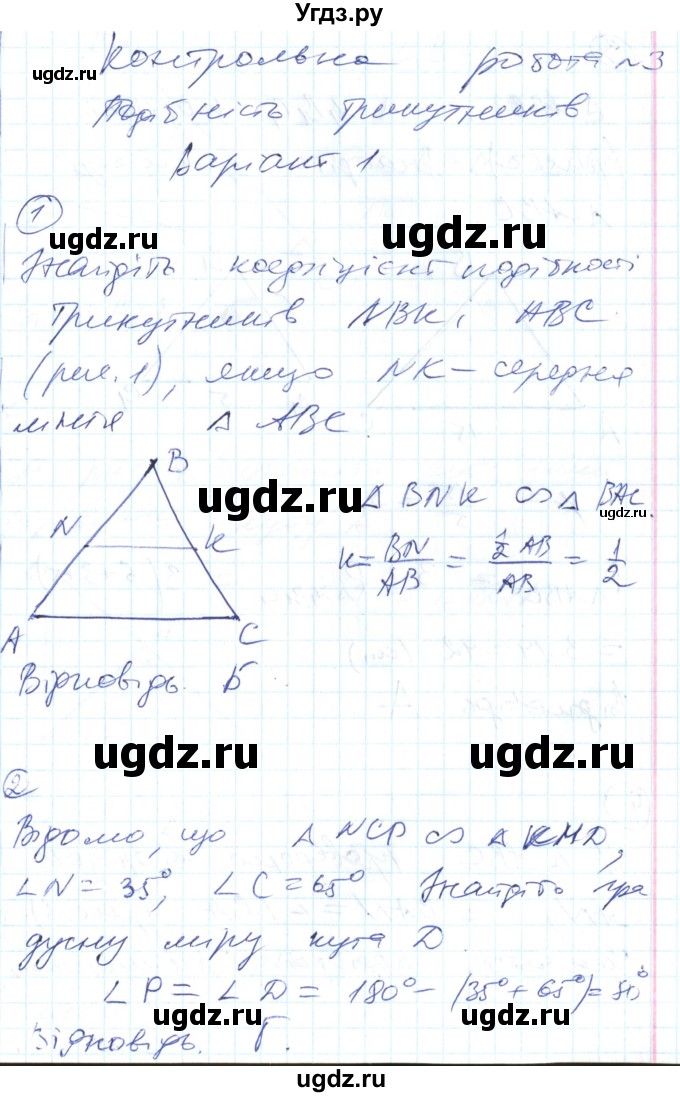 Угдз.ру
Контрольна робота №3
ugdz.ru
Подібність трикутників
Варіант 1
1
ugdz.ru
ugdz.ru
Знайдіть коефіцієнт подібності
трикутників NBK і ABC
(рис. 1), якщо NK – середня
лінія Δ ABC
B
N
K
A
C
ugdz.ru
Δ BNK ∽ Δ BAC.
ugdz.ru
K = BN/AB = ½ AB/AB = 1/2
Відповідь. Б
ugdz.ru
ugdz.ru
2
Відомо, що Δ NCP ∽ Δ KMD,
∠N = 35°, ∠C = 65° Знайдіть гра
дусну міру кута D
∠P = ∠D = 180° – (35° + 65°) = 80°
ugdz.ru
ugdz.ru
Відповідь. Г.
ugdz.ru